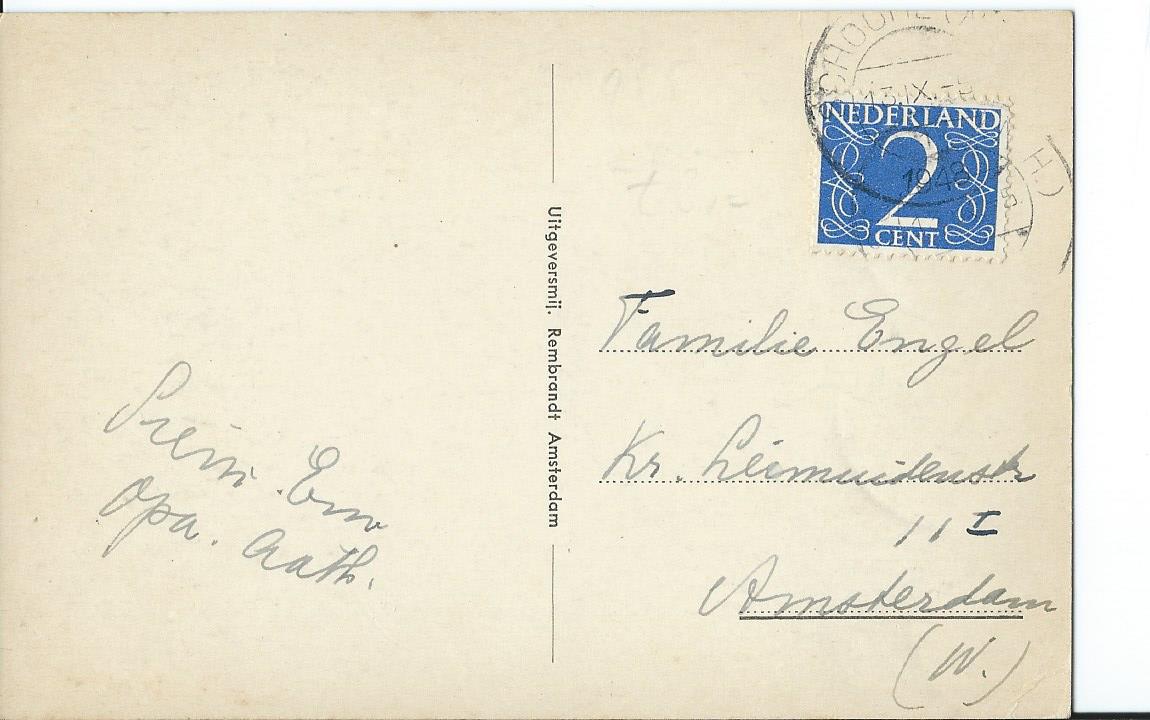 13.IX.
1948
NEDERLAND
2
CENT
Uitgeversmij. Rembrandt Amsterdam
Familie Engel
Kr. Leimuidenstr
11 I
Amsterdam
(W.)
Opa.